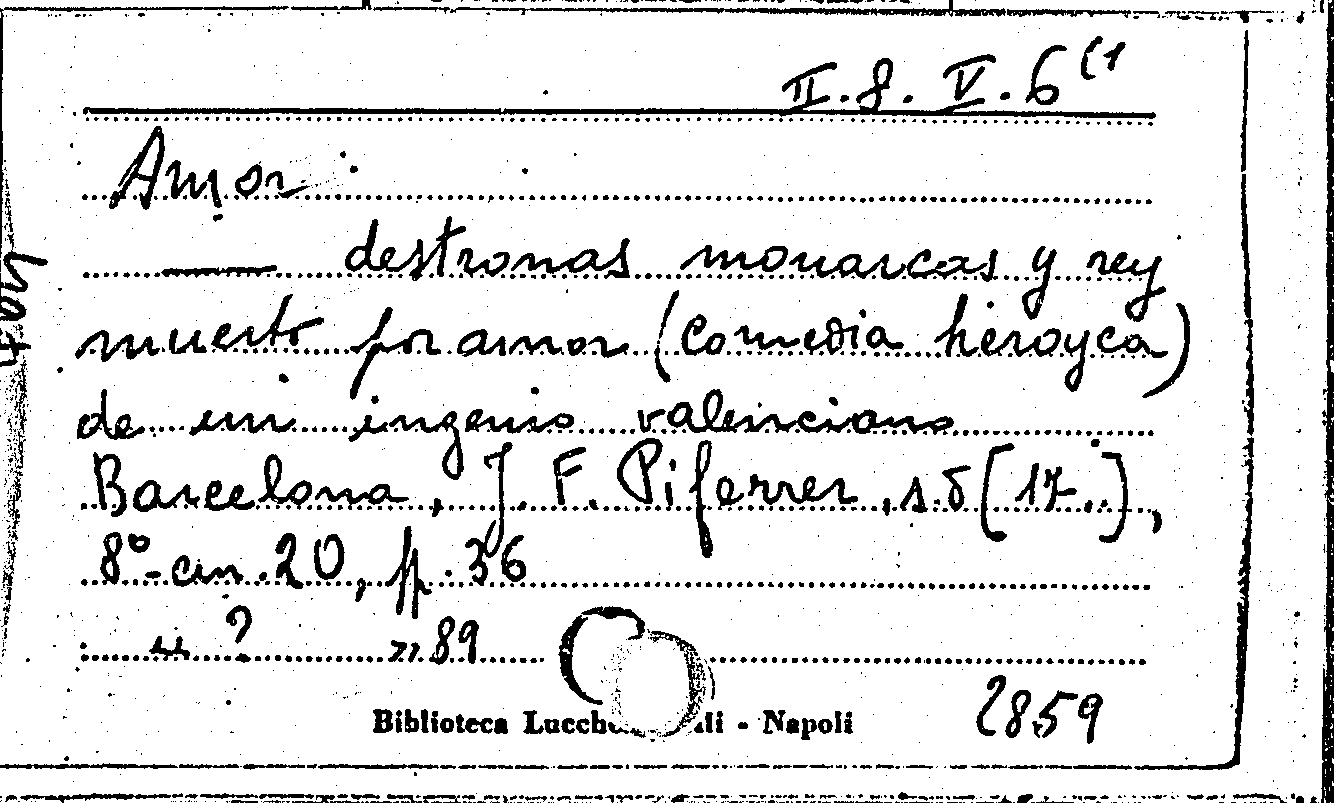 II.8. V.6(1
Amor
—— destronas monarcas y rey
muerto por amor (comedia heroyca)
de un ingenio valenciano
Barcelona, J. F. Piferrer, s.d [17..],
8°- cm. 20, pp. 36
" ? » 89
Biblioteca - Napoli
2859